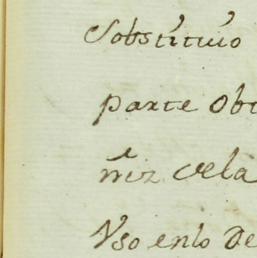 Sobstituió
parte Obt
dela
Vso enlo De